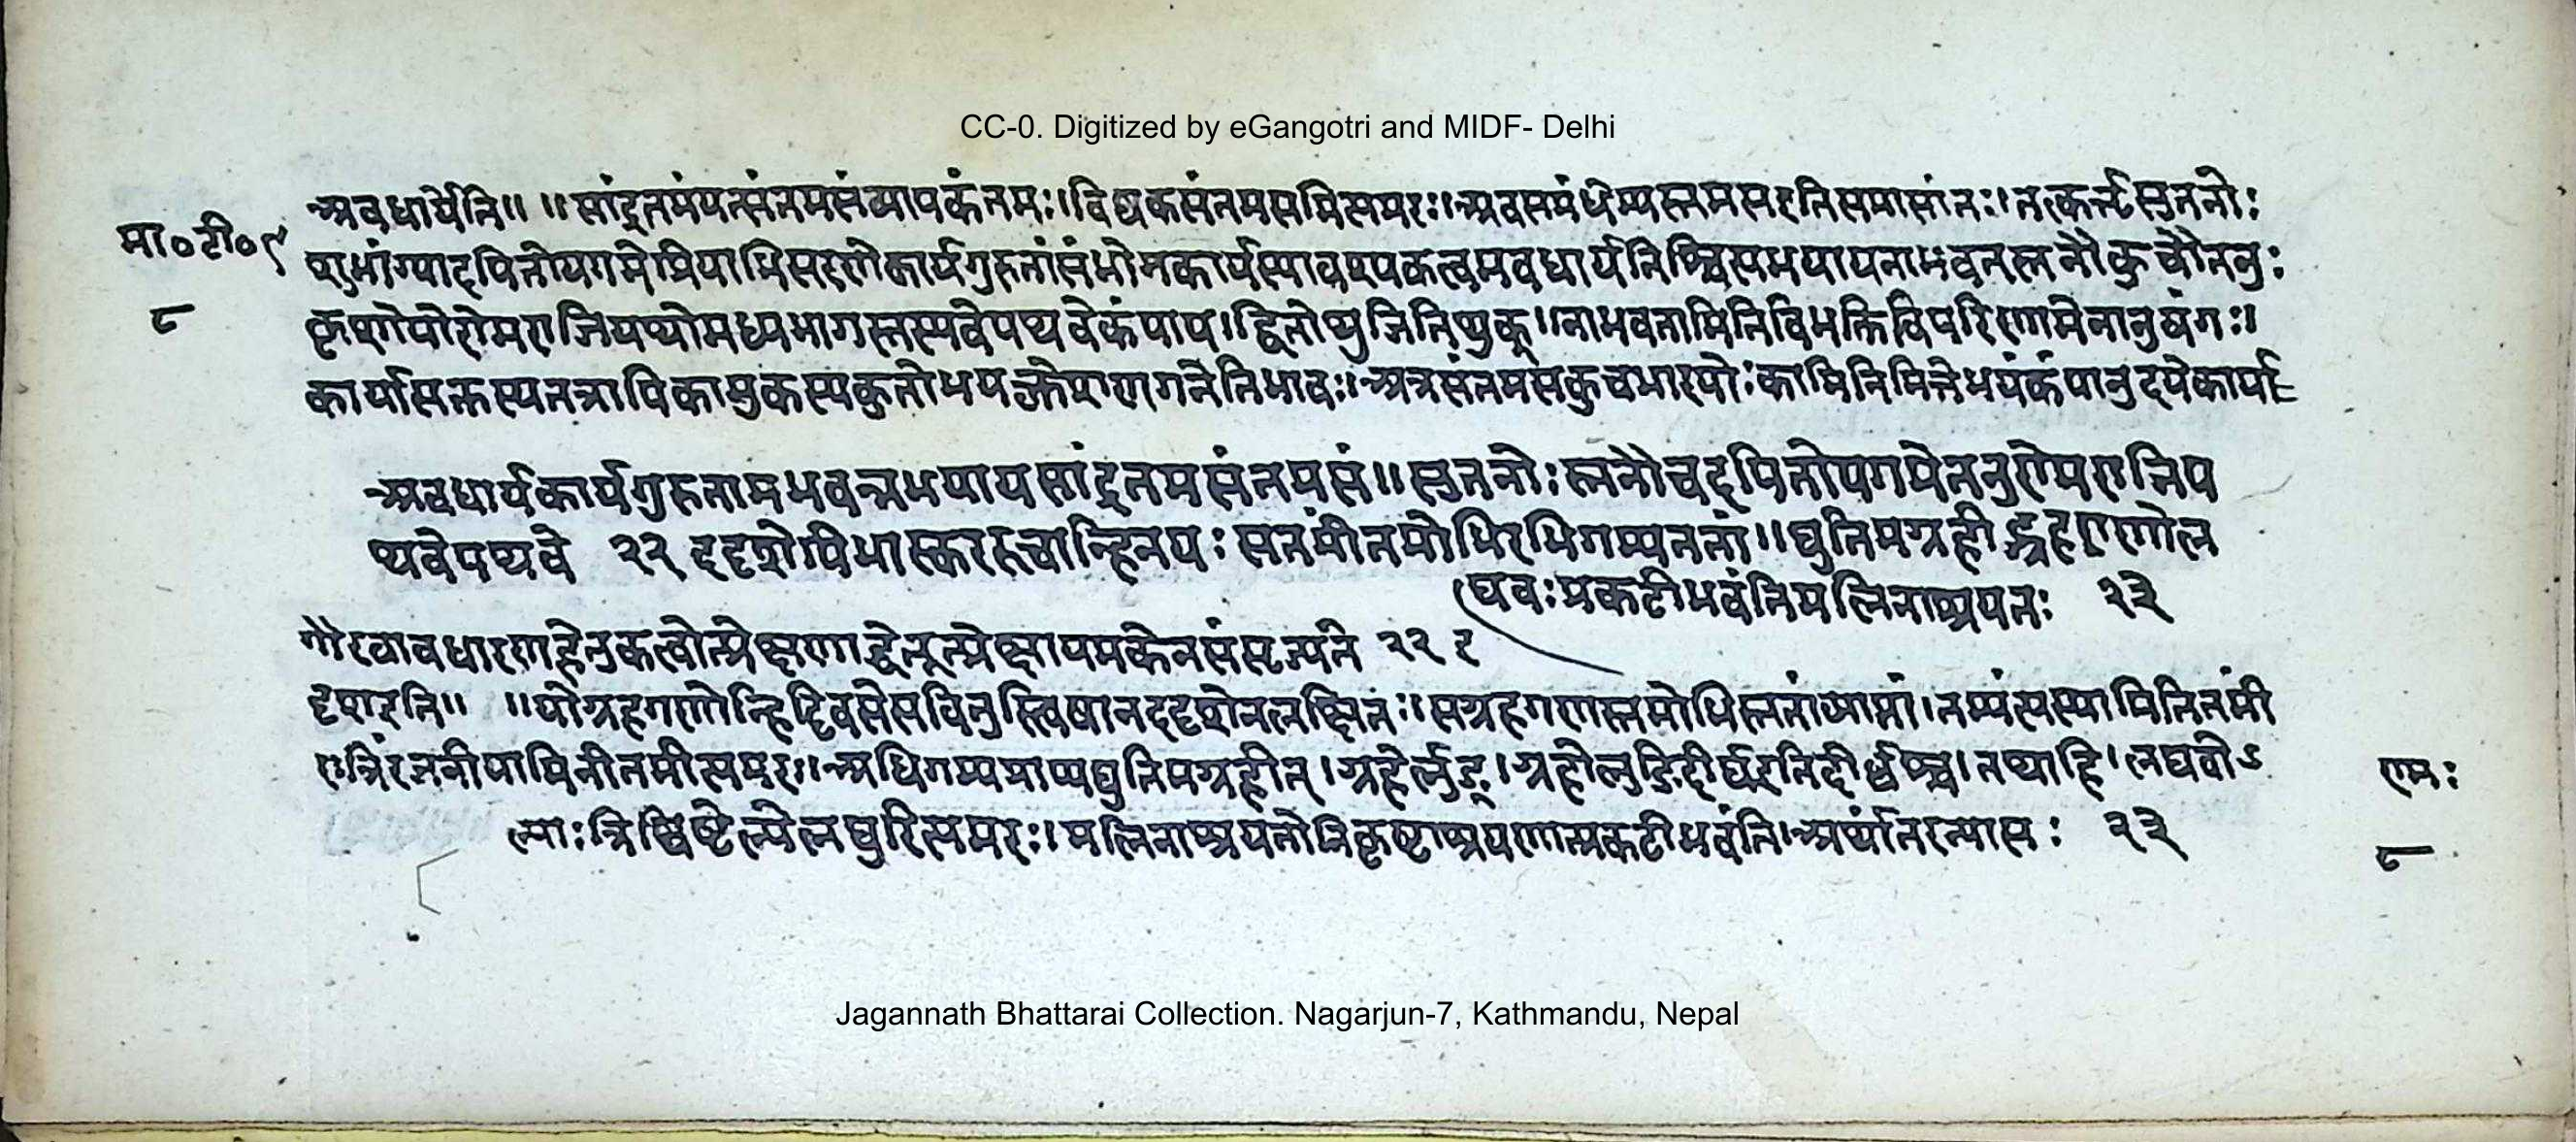 CC-0. Digitized by eGangotri and MIDF- Delhi
अवधार्येति॥ ॥सांद्रतमंयत्संतमसंव्यापकंतमः।विष्वकसंतमसमित्यमरः।अवसमंधेभ्यस्तमसइतिसमासांतः।तत्कर्तृसुतनोः
मा॰टी॰९
शुभांग्यादयितोयगमेप्रियाभिसरणेकार्यगुरुतांसंभोगकार्यस्यावश्यकत्वमवधार्यनिश्चित्यभयायनाभवतस्तनौकुचौतनुः
८
कृशोयोरोमराजियथोमध्यभागस्तस्यवेपथवेकंपाय।द्वितोथुजितिथुक्॥नाभवतामितिविभक्तिविपरिणामेनानुषंगः॥
कार्यासक्तस्यतत्रापिकामुकस्यकुतोभयक्लेशगणनेतिभावः।अत्रसंतमसकुचभारयोःकामिनिमित्तेभयंकंपानुदयेकार्या
अवधार्यकार्यगुरुतामभवन्नभयायसांद्रतमसंतमसं॥सुतनोःस्तनौचदयितोपगमेतनुरोमराजिप
थवेपथवे २२ ददृशेपिभास्कररुचान्हिनयः सतमीतमोभिरभिगम्यततां॥द्युतिमग्रहीद्ग्रहगणोल
घवःप्रकटीभवंतिमलिनाश्रयतः २३
गौरवावधारणहेतुकत्वोत्प्रेक्षणाद्धेतूत्प्रेक्षायमकेनसंसृज्यते २२ द
दृशइति॥ ॥योग्रहगणोन्हिदिवसेसवितुस्त्विषानददृशेनलक्षितः।सग्रहगणस्तमोभिस्ततांव्याप्तां।तम्यंत्यस्यामितितमी
रात्रिंरजनीयामिनीतमीत्यमरः॥अभिगम्यप्राप्यद्युतिमग्रहीत्।ग्रहेर्लुङ्।ग्रहोलुङिदीर्घइतिदीर्घश्च।तथाहि।लघवोऽ
रामः
ल्पाःत्रिष्विष्टेल्पेलघुरित्यमरः।मलिनाश्रयतोनिकृष्टाश्रयणात्प्रकटीभवंति।अर्थांतरन्यासः २३
८
Jagannath Bhattarai Collection. Nagarjun-7, Kathmandu, Nepal